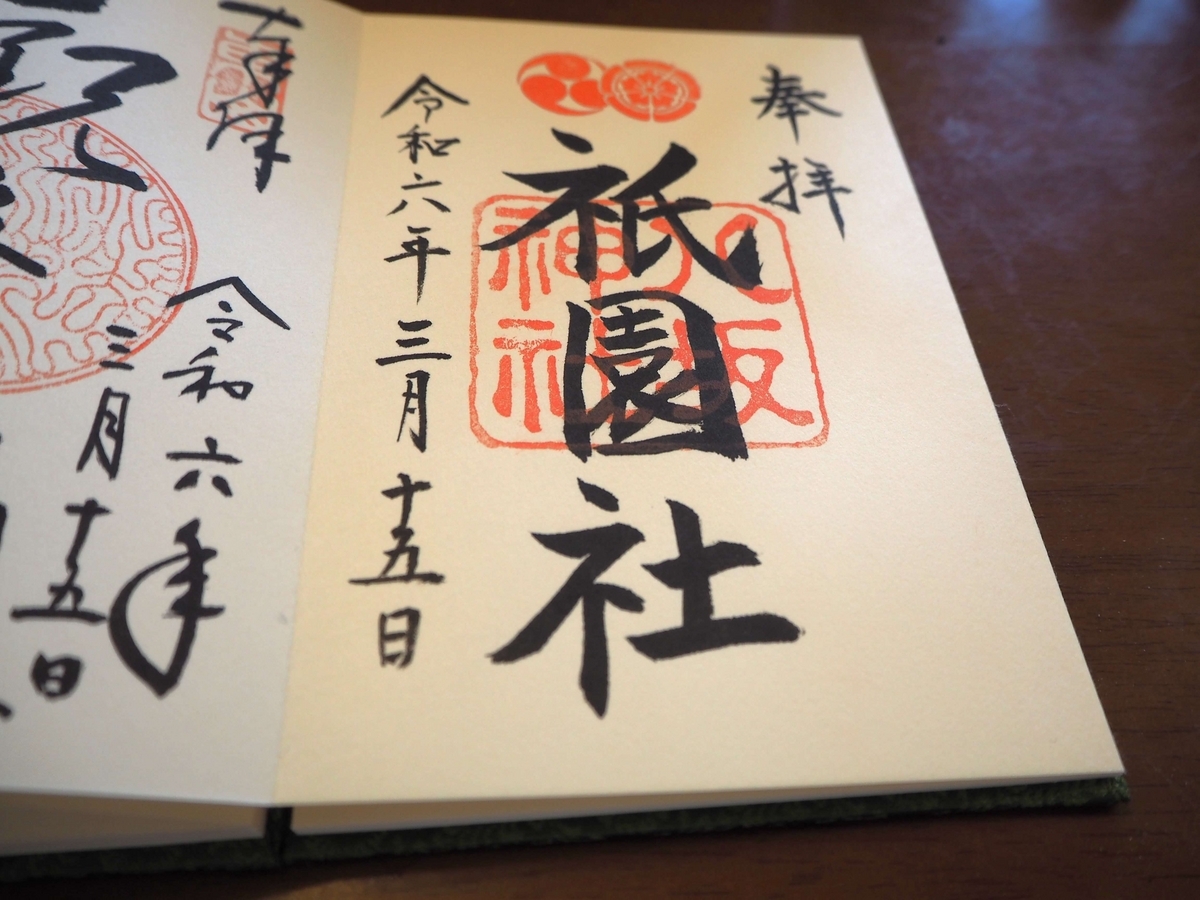 奉拝
祇園社
八坂
神社
令和六年三月十五日
奉拝
令和六年
三月十五日